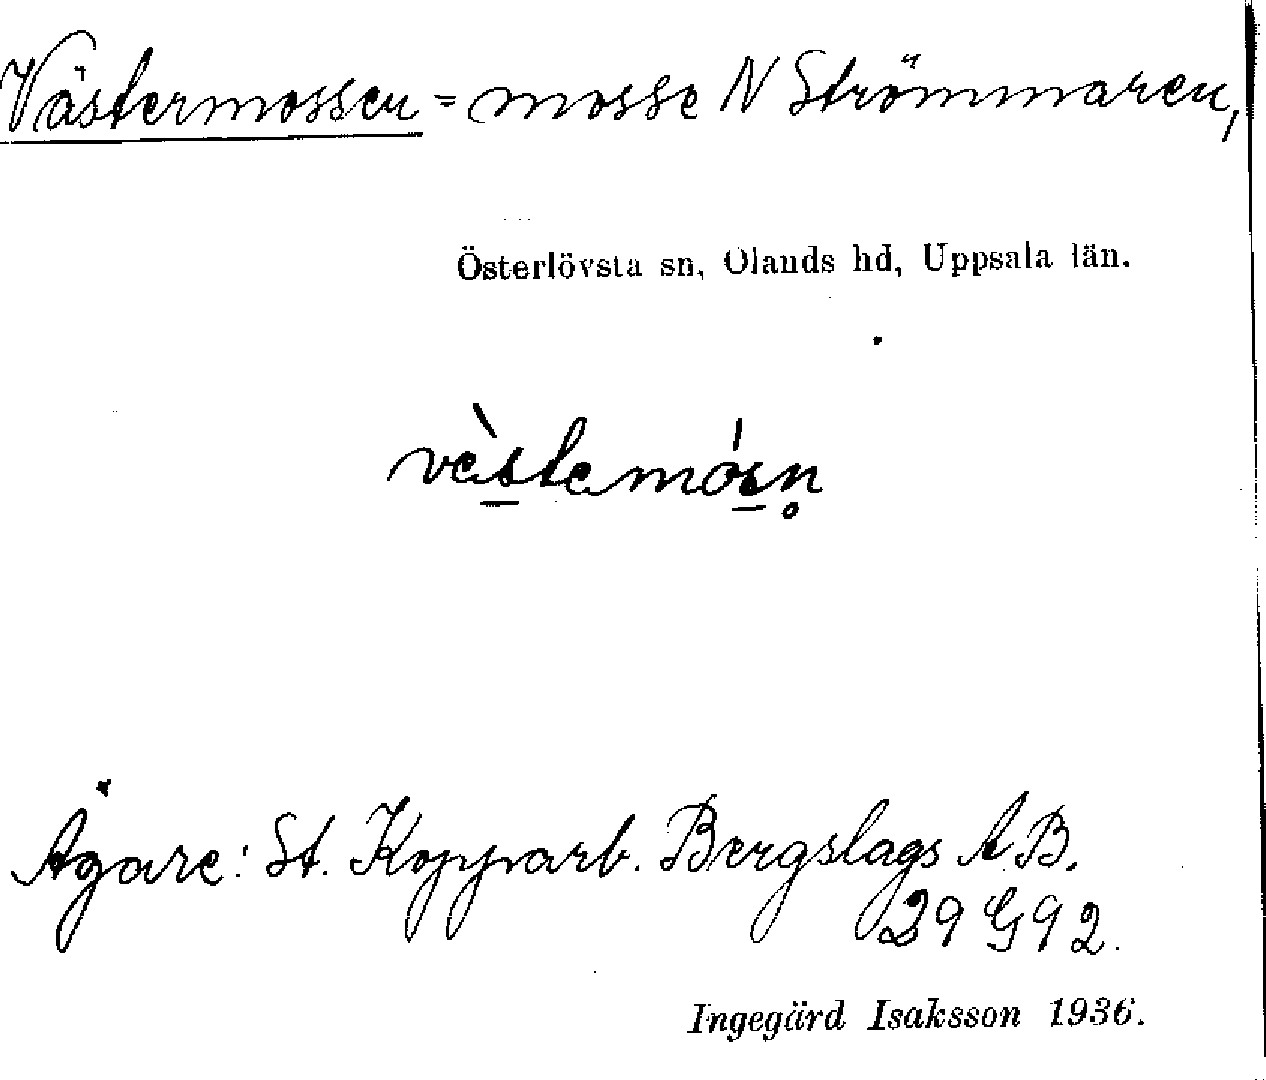 Västermossen = mosse N Strömmaren,
Österlövsta sn, Olands hd, Uppsala län.
vèstemósn̥
Ägare: St. Kopparb. Bergslags AB.
29 G 9 2.
Ingegärd Isaksson 1936.